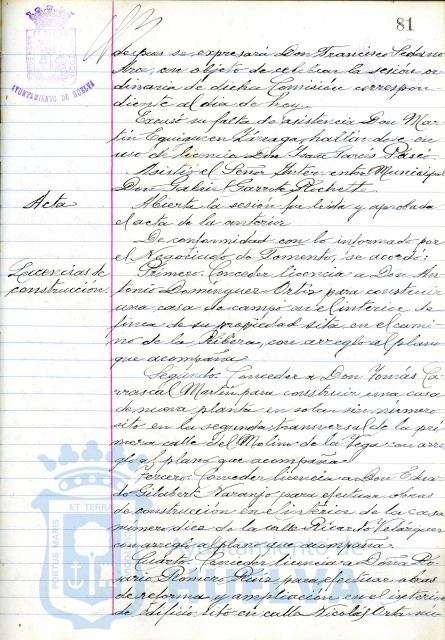 81
AYUNTAMIENTO DE HUELVA
despues se expresará Don Francisco Sedano
Arce, con objeto de celebrar la sesión or
dinaria de dicha Comisión correspon
diente al dia de hoy.
Excusó su falta de asistencia Don Mar
tín Eguiguren Azcaga, hallandose en
uso de licencia Don Juan Garcis Paseo.
Asistió el Señor Interventor Municipal
Don Gabriel Garrido Rochett.
Acta
Abierta la sesión fue leida y aprobada
el acta de la anterior
De conformidad con lo informado por
el Negociado de Fomento, se acordó:
Licencias de
construcción.
Primero: Conceder licencia a Don An
tonio Domínguez Ortiz para construir
una casa de campo en el interior de
finca de su propiedad sita en el cami
no de la Ribera, con arreglo al plano
que acompaña
Segundo: Conceder a Don Tomás Ca
rrascal Martín para construir una casa
de nueva planta en solar sin número
sito en la segunda tranversal de la pri
mera calle del Molino de la Vega con arre
glo al plano que acompaña
Tercero: Conceder licencia a Don Edua
do Gilabert Naranjo para efectuar obras
de construcción en el interior de la casa
número dice de la calle Ricardo Velázquez
con arreglo al plano que acompaña
Cuarto: Conceder licencia a Doña Ro
sario Romero Ruiz para efectuar obras
de reforma y ampliación en el interior
de edificio sito en calle Nicolás Orta nú
PORTUS MARIS ET TERRAE
Ayuntamiento de
HUELVA